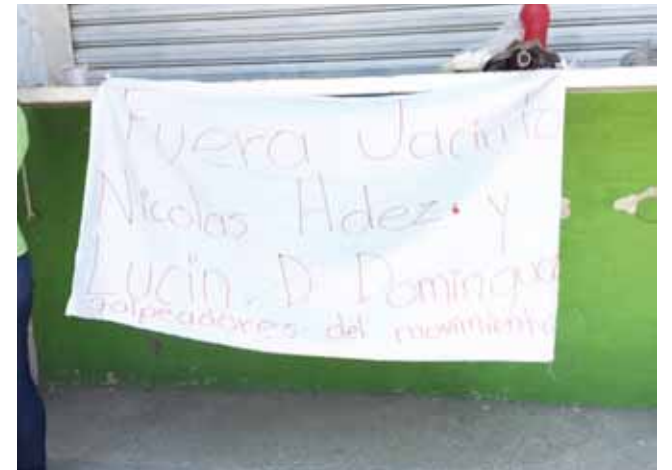 Fuera Jacinto
Nicolas Hdez. y
Lucin. D. Dominguez
golpeadores del movimiento